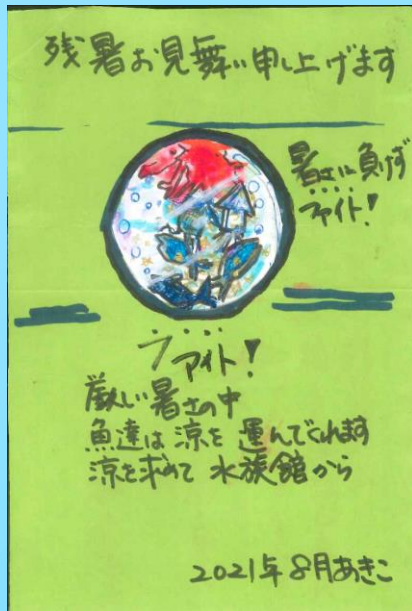 残暑お見舞い申し上げます
暑さに負けず
ファイト!
ファイト!
厳しい暑さの中
魚達は涼を運んでくれます
涼を求めて 水族館から
2021年8月あきこ